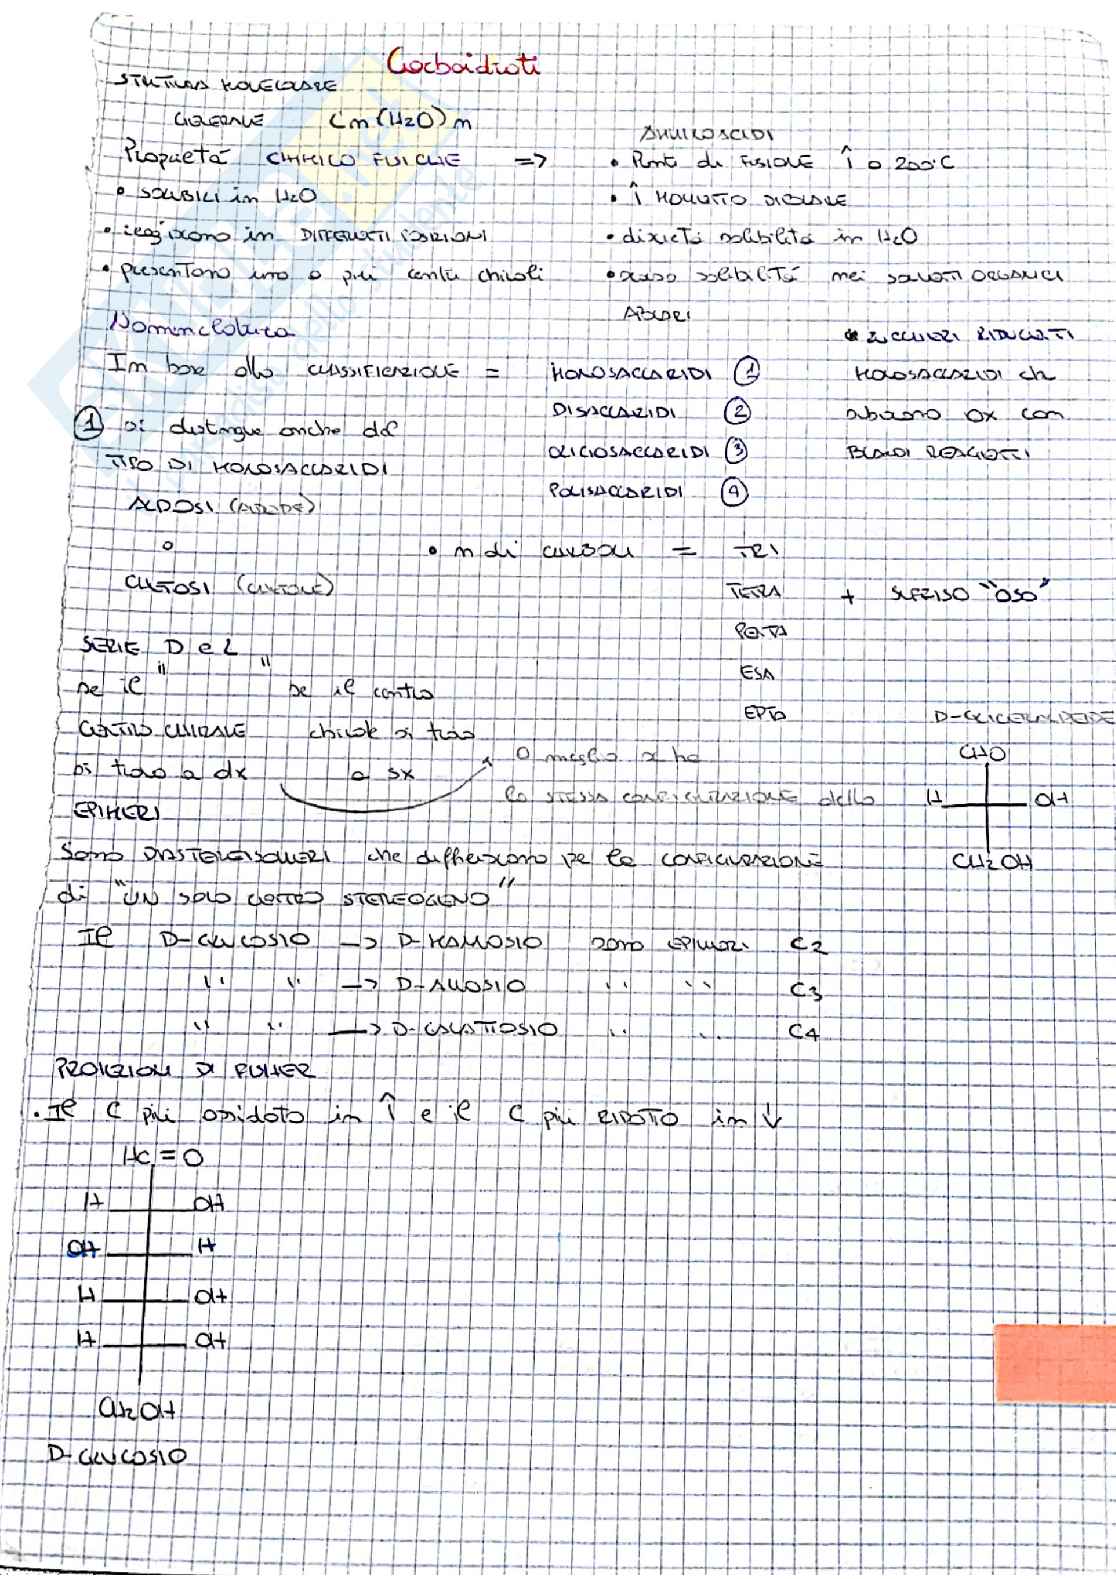 Carboidrati
STRUTTURA MOLECOLARE
GENERALE Cn(H2O)n
AMMINOACIDI
Proprietà CHIMICO FISICHE =>
• Punti di FUSIONE ↑ a 200°C
• SOLUBILI in H2O
• ↑ MOMENTO DIPOLARE
• reagiscono in DIFFERENTI POSIZIONI
• discreta solubilità in H2O
• presentano uno o più centri chirali
• scarsa solubilità nei SOLVENTI ORGANICI
APOLARI
Nomenclatura
• ZUCCHERI RIDUCENTI
In base alla CLASSIFICAZIONE = MONOSACCARIDI 1
MONOSACCARIDI ch
DISACCARIDI 2
subiscono ox con
1 si distingue anche dal
OLIGOSACCARIDI 3
BLANDI REAGENTI
TIPO DI MONOSACCARIDI
POLISACCARIDI 4
ALDOSI (ALDEIDE)
o
• n di CARBONI = TRI
CHETOSI (CHETONE)
TETRA + SUFFISSO "OSO"
PENTA
SERIE D e L
ESA
se il " " se il centro
EPTA
D-GLICERALDEIDE
CENTRO CHIRALE chirale si trova
CHO
si trova a dx a sx
O meglio se ha
la STESSA CONFIGURAZIONE della
H OH
EPIMERI
CH2OH
Sono DIASTEREISOMERI che differiscono per la CONFIGURAZIONE
di "UN SOLO CENTRO STEREOGENO"
Il D-GLUCOSIO -> D-MANNOSIO sono EPIMERI C2
" " -> D-ALLOSIO " " C3
" " -> D-GALATTOSIO " " C4
PROIEZIONI DI FISHER
• Il C più ossidato in ↑ e il C più RIDOTO in ↓
HC=O
H OH
OH H
H OH
H OH
CH2OH
D-GLUCOSIO